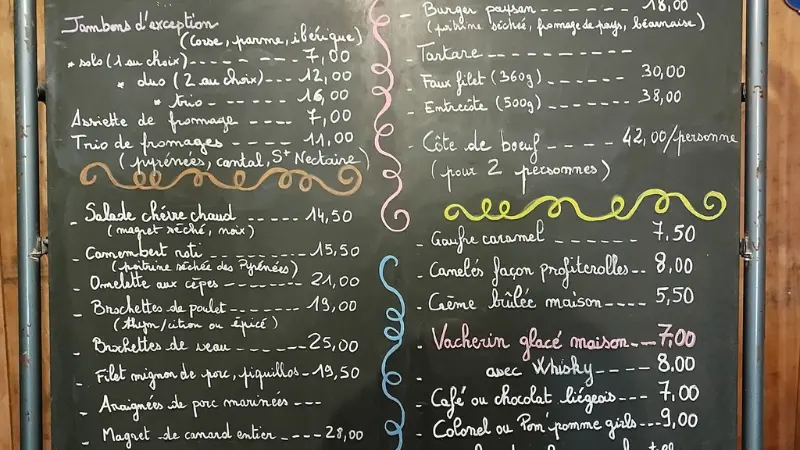 Jambons d'exception
(Corse, parme, ibérique)
* solo (1 au choix) ------ 7,00
* duo (2 au choix) --- 12,00
* trio - ------ 16,00
Assiette de fromage ---- 7,00
Trio de fromages ------ 11,00
(pyrénées, cantal, St Nectaire)
- Salade chèvre chaud ----- 14,50
(magret séché, noix)
- Camembert roti ------ 15,50
(poitrine séchée des Pyrénées)
- Omelette aux cèpes ----- 21,00
- Brochettes de poulet ----- 19,00
(thym/citron ou épicé)
- Brochettes de veau ------ 25,00
- Filet mignon de porc, piquillos - 19,50
- Araignées de porc marinées ---
- Magret de canard entier ---- 28,00
- Burger paysan ------ 18,00
(poitrine séchée, fromage de pays, béarnaise)
- Tartare ------------
- Faux filet (360g) ------ 30,00
- Entrecôte (500g) ------ 38,00
- Côte de boeuf ---- 42,00/personne
(pour 2 personnes)
- Gaufre caramel ------ 7,50
- Canelés façon profiterolles -- 8,00
- Crème brûlée maison ---- 5,50
- Vacherin glacé maison --- 7,00
- avec Whisky ---- 8,00
- Café ou chocolat liégeois --- 7,00
- Colonel ou Pom'pomme girls --- 9,00